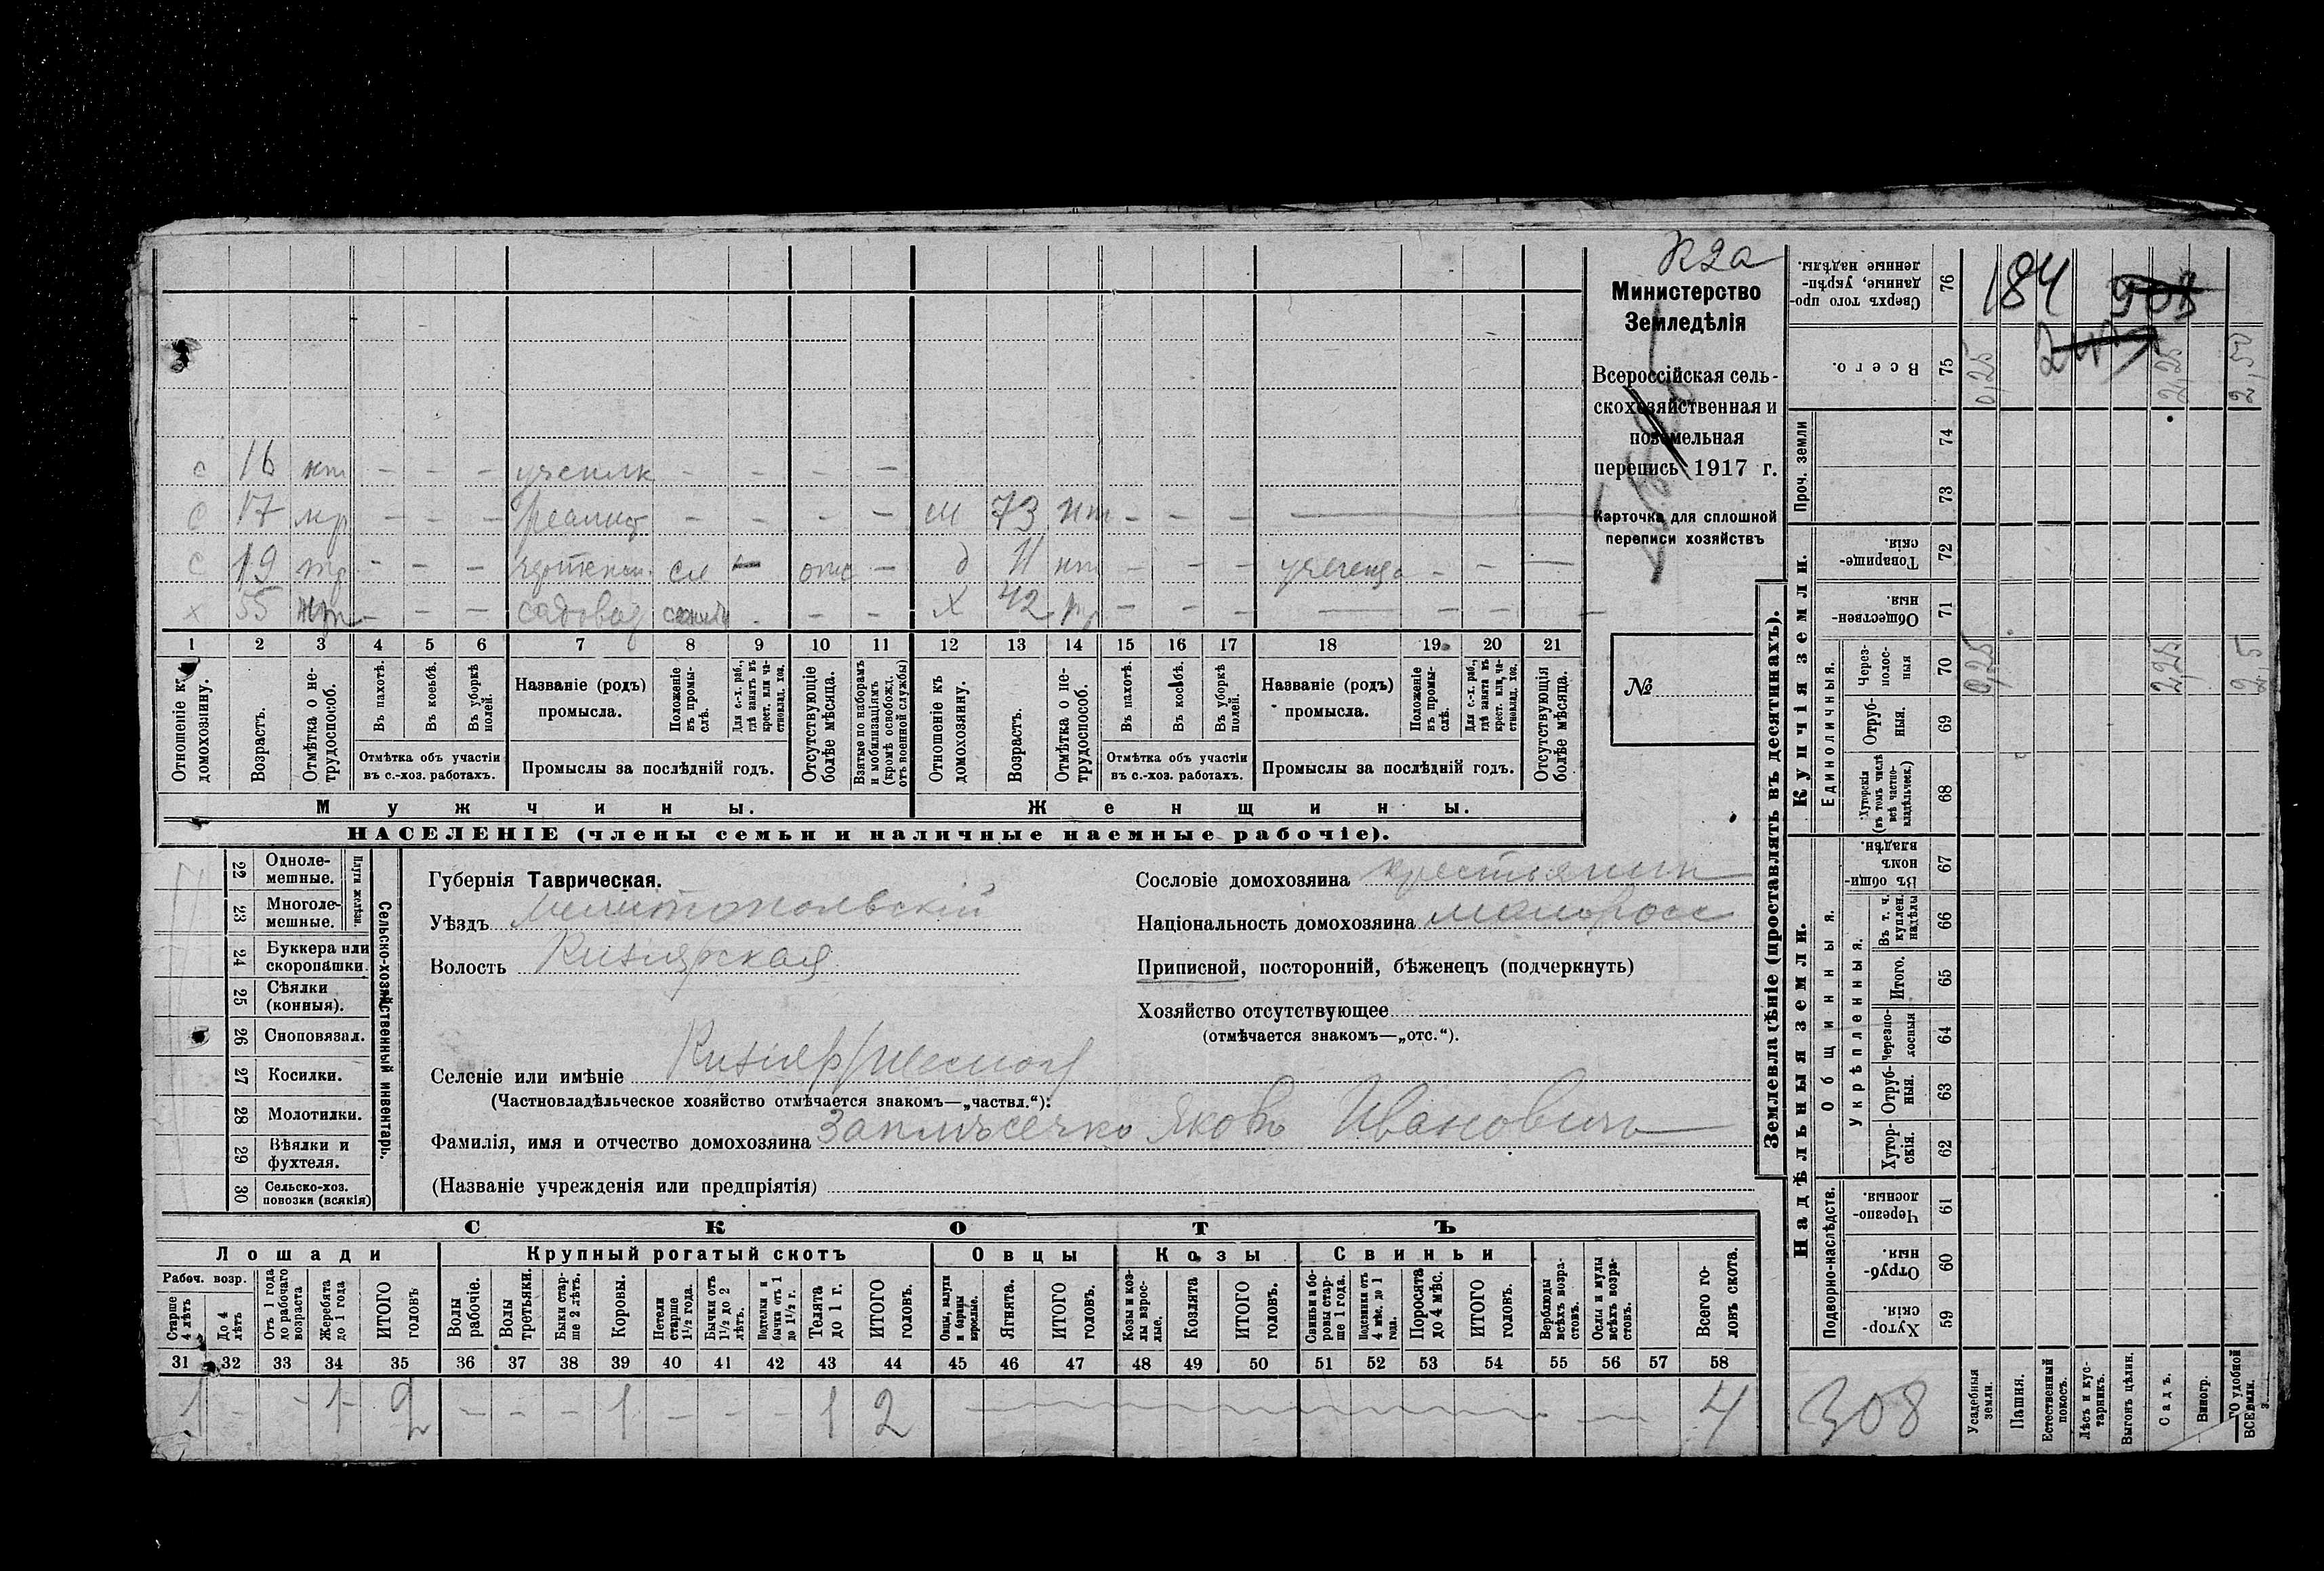 К2а
Министерство
Земледѣлія
Всероссійская сель-
скохозяйственная и
поземельная
перепись 1917 г.
Карточка для сплошной
переписи хозяйствъ
№
с 16 нт – – – ученик – – – –
с 17 – – – реалист – – – – ж 73 нт – – –
с 19 – – – сл – отс – д 11 нт – – – – – –
х 55 нт – – – садовод – – – х 42 – – – – – –
1 2 3 4 5 6 7 8 9 10 11 12 13 14 15 16 17 18 19 20 21
Отношеніе къ домохозяину.
Возрастъ.
Отмѣтка о не-трудоспособ.
Въ пахотѣ.
Въ косьбѣ.
Въ уборкѣ полей.
Отмѣтка объ участіи въ с.-хоз. работахъ.
Названіе (родъ) промысла.
Положеніе въ промы-слѣ.
Для с.-х. раб., гдѣ занятъ въ крест. или ча-стновлад. хоз.
Промыслы за послѣдній годъ.
Отсутствующіе болѣе мѣсяца.
Взятые по наборамъ и мобилизаціямъ (кромѣ освобожд. отъ военной службы)
Отношеніе къ домохозяину.
Возрастъ.
Отмѣтка о не-трудоспособ.
Въ пахотѣ.
Въ косьбѣ.
Въ уборкѣ полей.
Отмѣтка объ участіи въ с.-хоз. работахъ.
Названіе (родъ) промысла.
Положеніе въ промы-слѣ.
Для с.-х. раб., гдѣ занята въ крест. или ча-стновлад. хоз.
Промыслы за послѣдній годъ.
Отсутствующія болѣе мѣсяца.
Мужчины. Женщины.
НАСЕЛЕНІЕ (члены семьи и наличные наемные рабочіе).
Сельско-хозяйственный инвентарь.
Плуги желѣзн.
22 Одноле-мешные.
23 Многоле-мешные.
24 Буккера или скоропашки.
25 Сѣялки (конныя).
26 Сноповязал.
27 Косилки.
28 Молотилки.
29 Вѣялки и фухтеля.
30 Сельско-хоз. повозки (всякія)
Губернія Таврическая.
Уѣздъ Мелитопольвскій
Волость Кизиярская
Селеніе или имѣніе Кизияр
(Частновладѣльческое хозяйство отмѣчается знакомъ—„частвл.“):
Фамилія, имя и отчество домохозяина Яковъ Ивановичъ
(Названіе учрежденія или предпріятія)
Сословіе домохозяина крестьянин
Національность домохозяина малоросс
Приписной, посторонній, бѣженецъ (подчеркнуть)
Хозяйство отсутствующее
(отмѣчается знакомъ—„отс.“).
СКОТЪ
Лошади Крупный рогатый скотъ Овцы Козы Свиньи
Рабоч. возр.
Старше 4 лѣтъ
До 4 лѣтъ
Отъ 1 года до рабочаго возраста
Жеребята до 1 года
ИТОГО головъ
Волы рабочіе.
Волы третьяки.
Быки стар-ше 2 лѣтъ.
Коровы.
Нетели старше 1½ года.
Бычки отъ 1½ до 2 лѣтъ.
Подтелки и бычки отъ 1 до 1½ г.
Телята до 1 г.
ИТОГО головъ.
Овцы, валухи и бараны взрослые.
Ягнята.
ИТОГО головъ.
Козы и коз-лы взрос-лые.
Козлята
ИТОГО головъ.
Свиньи и бо-ровы стар-ше 1 года.
Подсвинки отъ 4 мѣс. до 1 года.
Поросята до 4 мѣс.
ИТОГО головъ.
Верблюды всѣхъ возра-стовъ.
Ослы и мулы всѣхъ возра-стовъ.
Всего го-ловъ скота.
31 32 33 34 35 36 37 38 39 40 41 42 43 44 45 46 47 48 49 50 51 52 53 54 55 56 57 58
1 – – 1 2 – – – 1 – – – 1 2 4
Землевладѣніе (проставлять въ десятинахъ).
Купчія земли.
Надѣльныя земли.
Сверхъ того про-данные, укрѣп-ленные надѣлы. 76
184
Всего. 75 0,25 2,25 2,50
Проч. земли 74 73
Товарище-скія. 72
Обществен-ныя. 71
Единоличныя.
Через-полос-ныя 70 0,25 2,25 2,5
Отруб-ныя. 69
Хуторскія (въ томъ числѣ всѣ частно-владѣльческ.) 68
Общинныя.
Въ общин-номъ владѣн. 67
Укрѣпленныя.
Въ т. ч. куплен. надѣлы 66
Итого. 65
Черезпо-лосныя 64
Отруб-ныя. 63
Хутор-скія. 62
Подворно-наслѣдств.
Черезпо-лосныя. 61
Отруб-ныя. 60
Хутор-скія. 59
308
Усадебныя земли.
Пашня.
Естественный покосъ.
Лѣсъ и кус-тарникъ.
Выгонъ цѣлин.
Садъ.
Виногр.